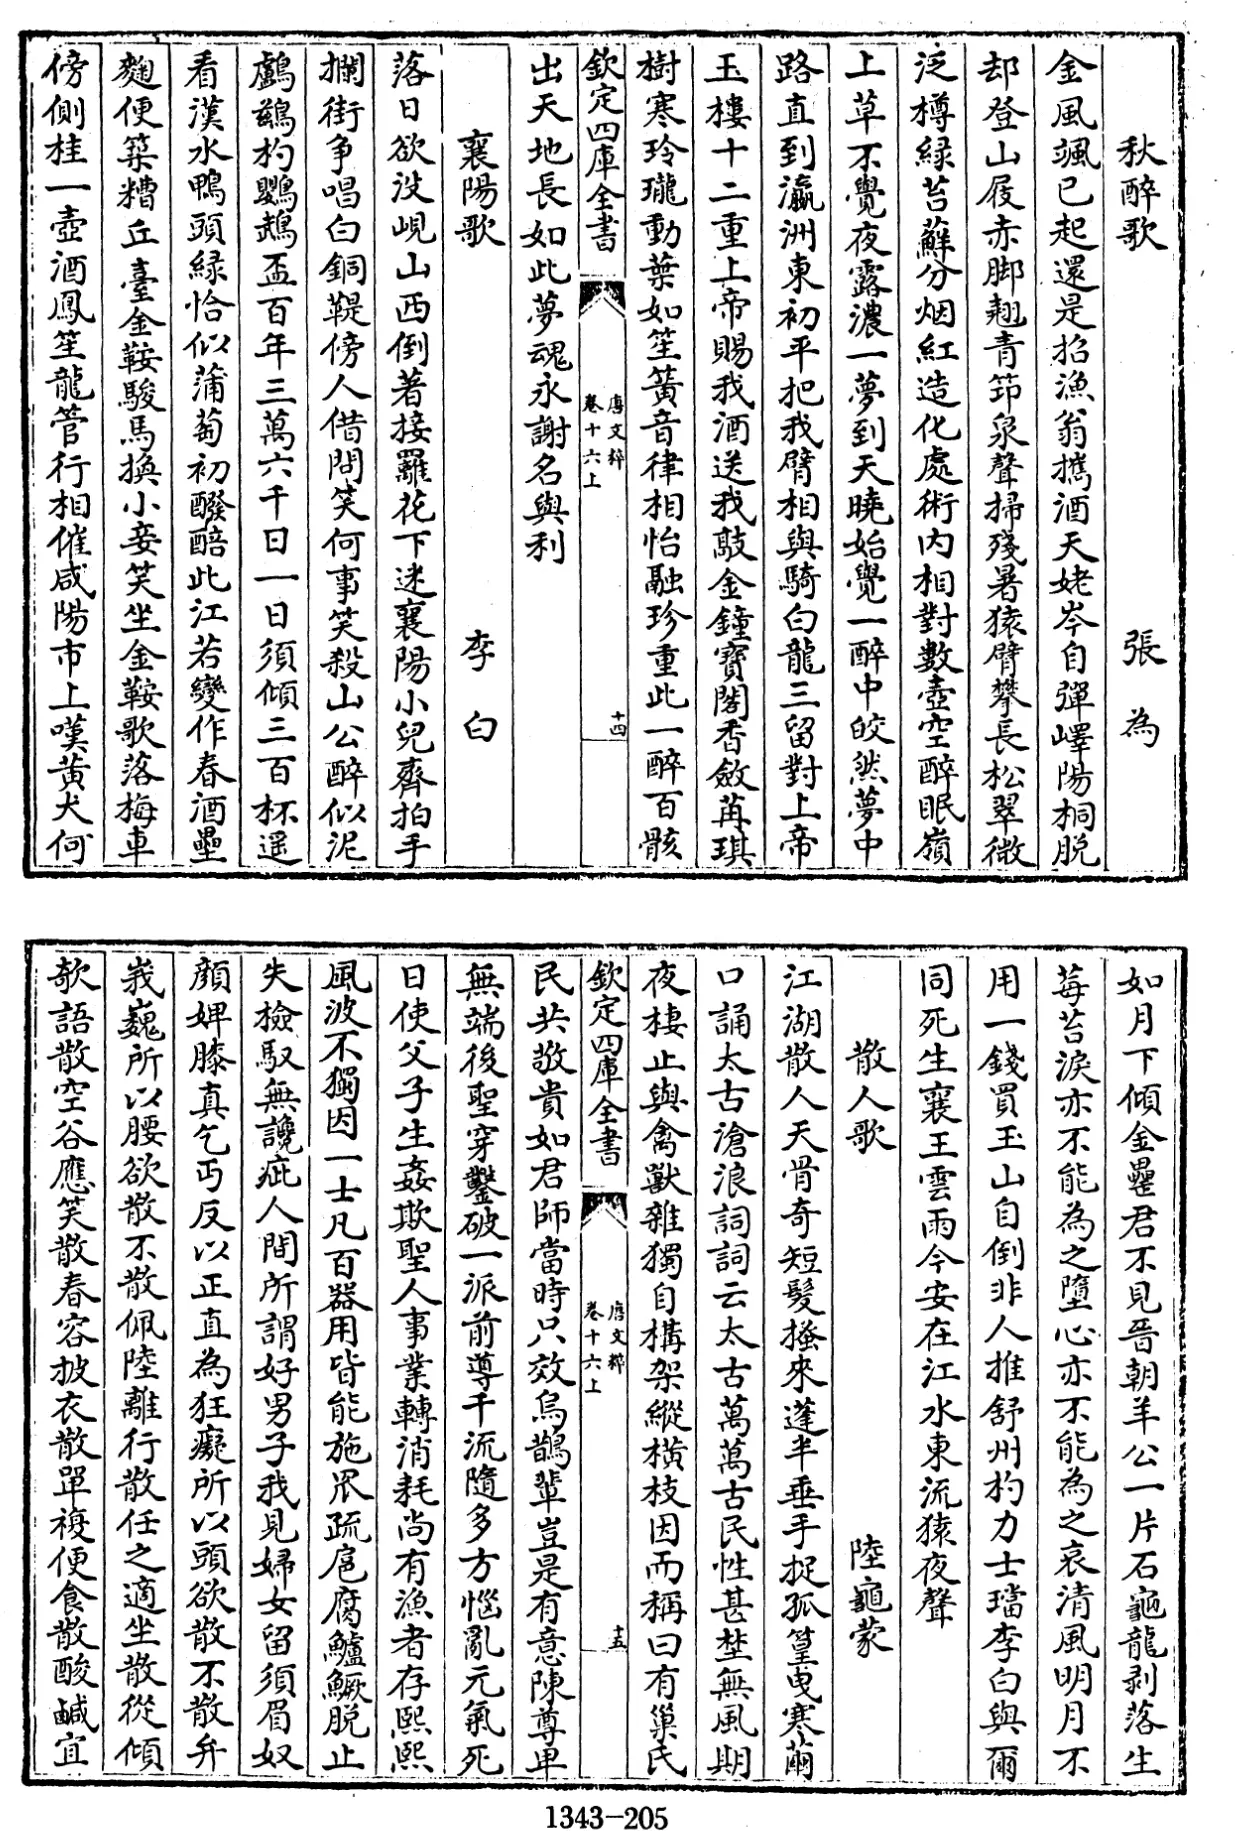 秋醉歌　張為
金風颯已起還是招漁翁攜酒天姥岑自彈嶧陽桐脱
却登山屐赤脚翹青笻泉聲掃殘暑猿臂攀長松翠微
泛樽綠苔蘚分烟紅造化處術内相對數壺空醉眠嶺
上草不覺夜露濃一夢到天曉始覺一醉中皎然夢中
路直到瀛洲東初平把我臂相與騎白龍三留對上帝
玉樓十二重上帝賜我酒送我敲金鐘寶閣香斂苒琪
樹寒玲瓏動葉如笙簧音律相怡融珍重此一醉百骸
欽定四庫全書　唐文粹卷十六上　十四
出天地長如此夢魂永謝名與利
襄陽歌　李白
落日欲没峴山西倒著接䍦花下迷襄陽小兒齊拍手
攔街争唱白銅鞮傍人借問笑何事笑殺山公醉似泥
鸕鷀杓鸚鵡盃百年三萬六千日一日須傾三百杯遥
看漢水鴨頭緑恰似蒲萄初醱醅此江若變作春酒壘
麴便築糟丘臺金鞍駿馬換小妾笑坐金鞍歌落梅車
傍側桂一壺酒鳳笙龍管行相催咸陽市上嘆黄犬何
如月下傾金罍君不見晉朝羊公一片石龜龍剥落生
莓苔淚亦不能為之墮心亦不能為之哀清風明月不
用一錢買玉山自倒非人推舒州杓力士璫李白與爾
同死生襄王雲雨今安在江水東流猿夜聲
散人歌　陸龜蒙
江湖散人天骨奇短髮搔來蓬半垂手捉孤篁曳寒繭
口誦太古滄浪詞詞云太古萬萬古民性甚埜無風期
夜棲止與禽獸雜獨自構架縱橫枝因而稱曰有巢氏
欽定四庫全書　唐文粹卷十六上　十五
民共敬貴如君師當時只效烏鵲輩豈是有意陳尊卑
無端後聖穿鑿破一派前導千流隨多方惱亂元氣死
日使父子生姦欺聖人事業轉消耗尚有漁者存熙熙
風波不獨因一士凡百器用皆能施罛疏扈腐鱸鱖脱止
失檢馭無讒疵人間所謂好男子我見婦女留須眉奴
顔婢膝真乞丐反以正直為狂癡所以頭欲散不散弁
峩巍所以腰欲散不散佩陸離行散任之適坐散從傾
欹語散空谷應笑散春容披衣散單複便食散酸鹹宜
1343-205